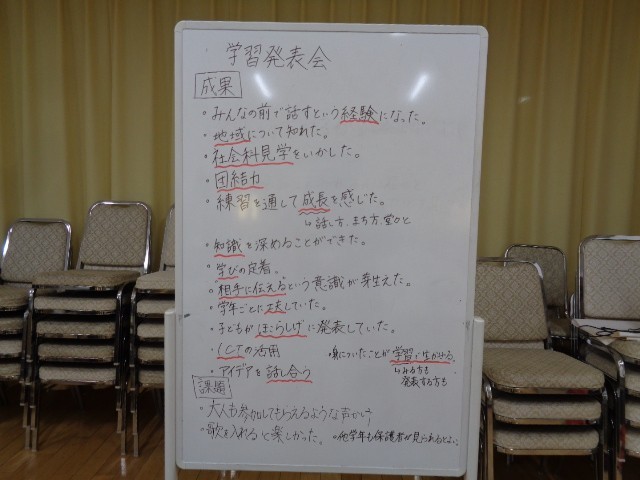 学習発表会
成果
・みんなの前で話すという経験になった。
・地域について知れた。
・社会科見学をいかした。
・団結力
・練習を通して成長を感じた。
↳話し方、まち方、堂々と
・知識を深めることができた。
・学びの定着。
・"相手に伝える"という意識が芽生えた。
・学年ごとに工夫していた。
・子どもがほこらしげに発表していた。
・ICTの活用
・身についたことが学習に生かせる。
↳みる方も
発表する方も
・アイデアを話し合う
課題
・大人も参加してもらえるような声かけ
・歌を入れると楽しかった。
・他学年も保護者が見られると